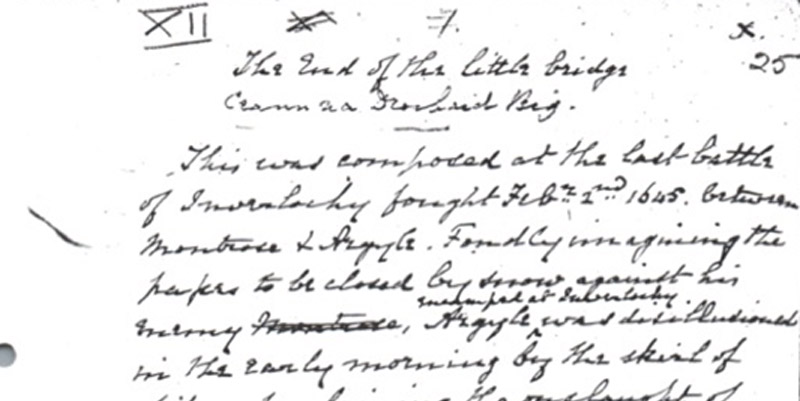 XII 7. x.
25
The End of the little bridge
Ceann na Drochaid Big.
This was composed at the last battle
of Inverlochy fought Febr 2nd 1645. between
Montrose & Argyle. Fondly imagining the
papers to be closed by snow against his
encamped at Inverlochy.
enemy Montrose, Argyle was disillusioned
in the early morning by the skirl of
the onslaught of